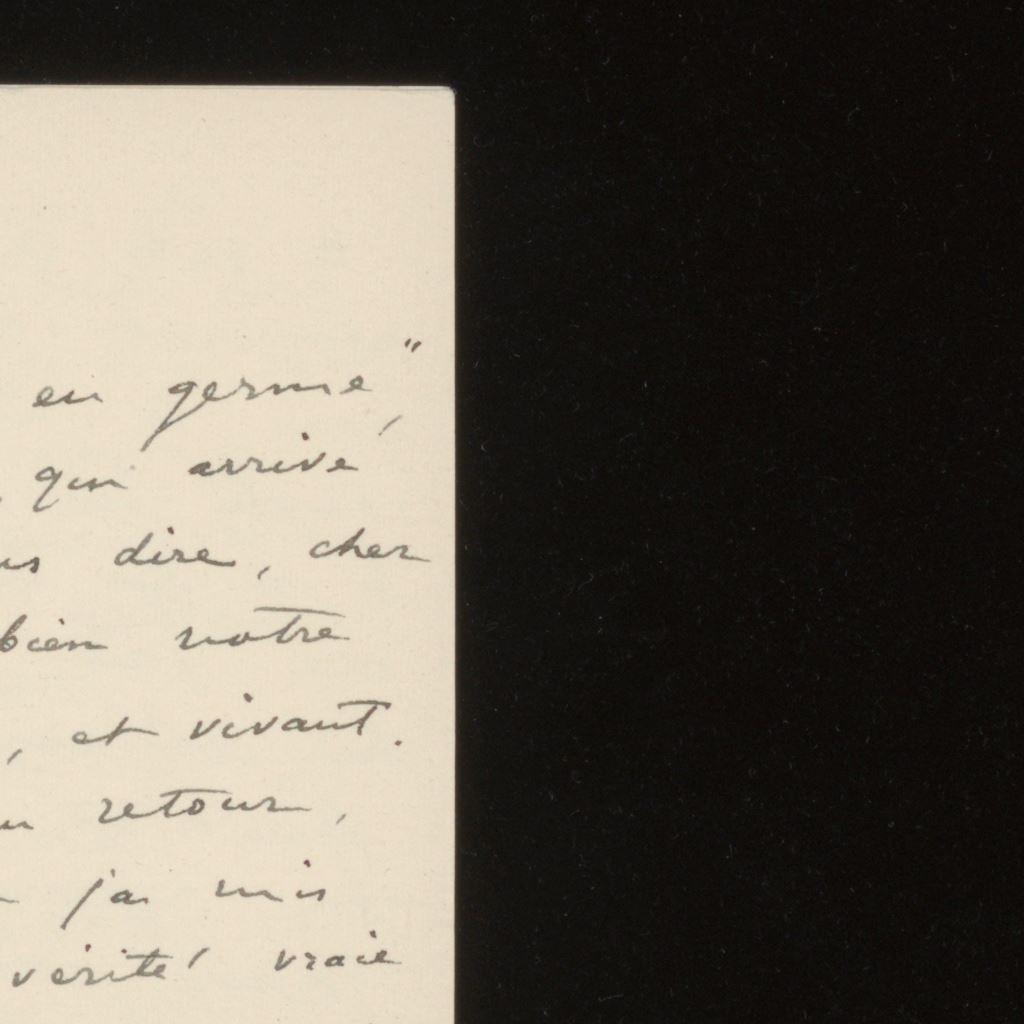 en germe",
, qui arrive
us dire, cher
bien notre
, et vivant.
retour,
j'ai mis
vérité vraie